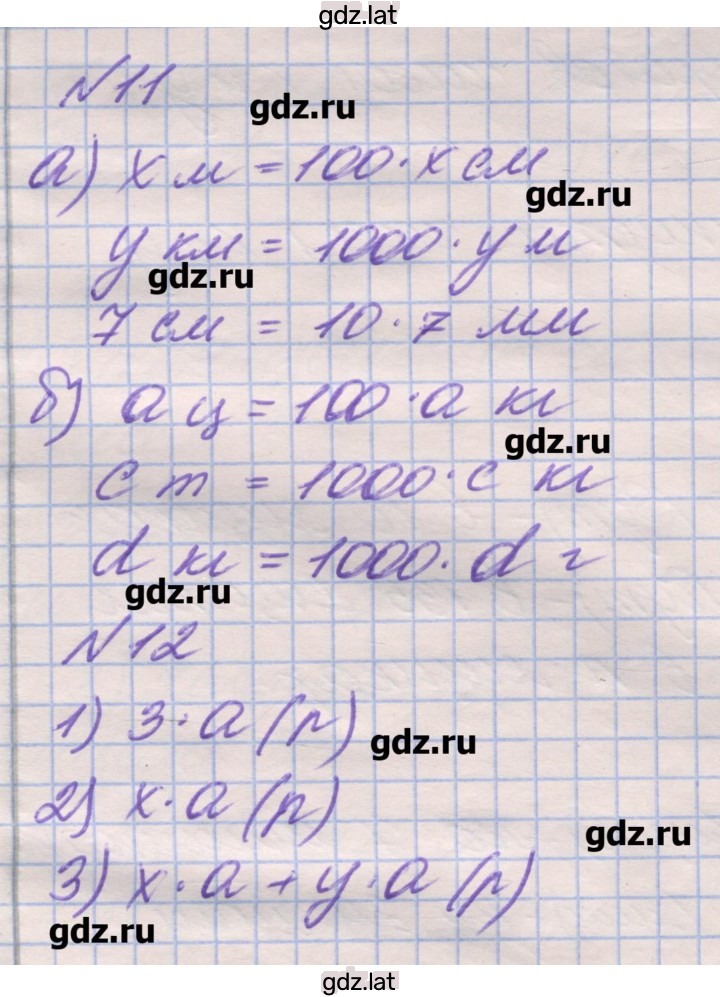 gdz.lat
№11
gdz.ru
а) x м = 100·x см
gdz.ru
y км = 1000·y м
gdz.ru
7 см = 10·7 мм
б) a ц = 100·a кг
gdz.ru
c т = 1000·c кг
d кг = 1000·d г
gdz.ru
№12
1) 3·a (р)
gdz.ru
2) x·a (р)
gdz.ru
3) x·a + y·a (р)
gdz.ru
gdz.lat